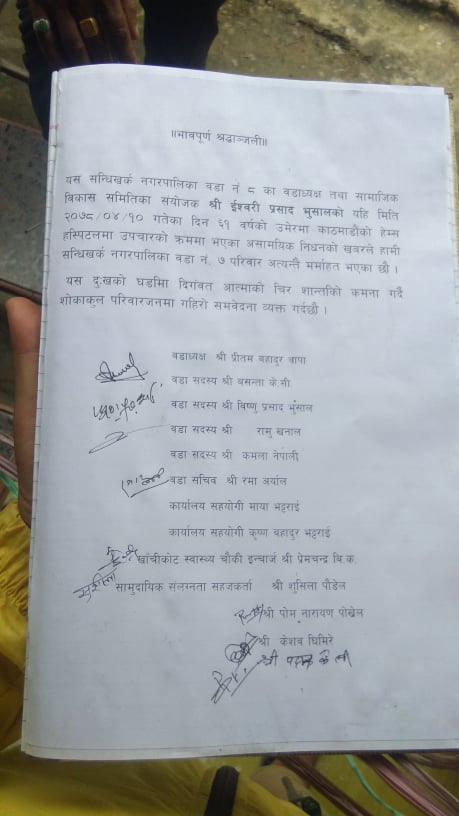 ॥भावपूर्ण श्रद्धाञ्जली॥
यस सन्धिखर्क नगरपालिका वडा नं ८ का वडाध्यक्ष तथा सामाजिक
बिकास समितिका संयोजक श्री ईश्वरी प्रसाद भुसालको यहि मिति
२०७८/०४/१० गतेका दिन ६१ वर्षको उमेरमा काठमाडौको हेम्स
हस्पिटलमा उपचारको क्रममा भएका असामयिक निधनको खबरले हामी
सन्धिखर्क नगरपालिका वडा नं. ७ परिवार अत्यन्तै मर्माहत भएका छौ ।
यस दुःखको घडीमा दिगंवत आत्माको चिर शान्तिको कमना गर्दै
शोकाकुल परिवारजनमा गहिरो समवेदना व्यक्त गर्दछौ ।
वडाध्यक्ष श्री प्रीतम बहादुर थापा
वडा सदस्य श्री बसन्ता के.सी.
वडा सदस्य श्री बिष्णु प्रसाद भुंसाल
वडा सदस्य श्री रामु खनाल
वडा सदस्य श्री कमला नेपाली
वडा सचिव श्री रमा अर्याल
कार्यालय सहयोगी माया भट्टराई
कार्यालय सहयोगी कृष्ण बहादुर भट्टराई
खाँचीकोट स्वास्थ्य चौकी इन्चार्ज श्री प्रेमचन्द्र बि.क.
सुशीला सामुदायिक संलग्नता सहजकर्ता श्री शुसिला पौडेल
श्री पोम नारायण पोख्रेल
श्री केशव घिमिरे
श्री के सी